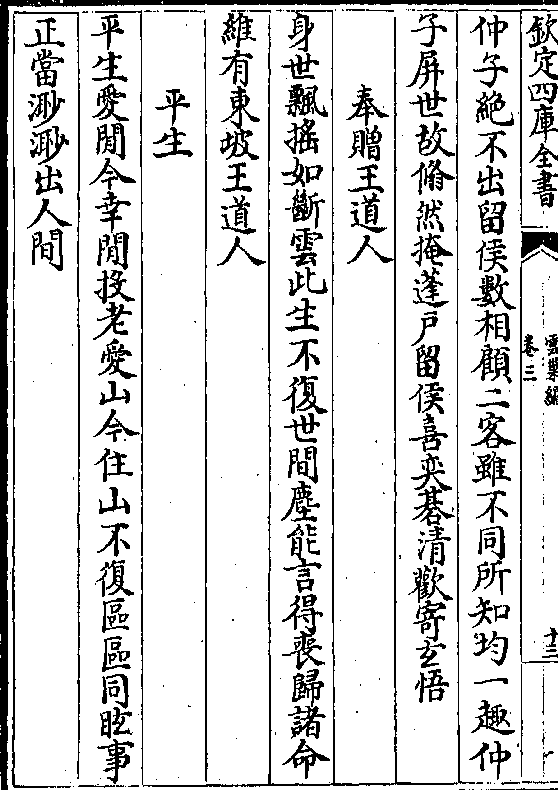 欽定四庫全書
雲巢編
卷三
十三
仲子絶不出留侯數相顧二客雖不同所知均一趣仲
子屏世故翛然掩蓬戶留侯喜奕碁清歡寄玄悟
奉贈王道人
身世飄搖如斷雲此生不復世間塵能言得喪歸諸命
維有東坡王道人
平生
平生愛閒今幸閒投老愛山今住山不復區區同眩事
正當渺渺出人間